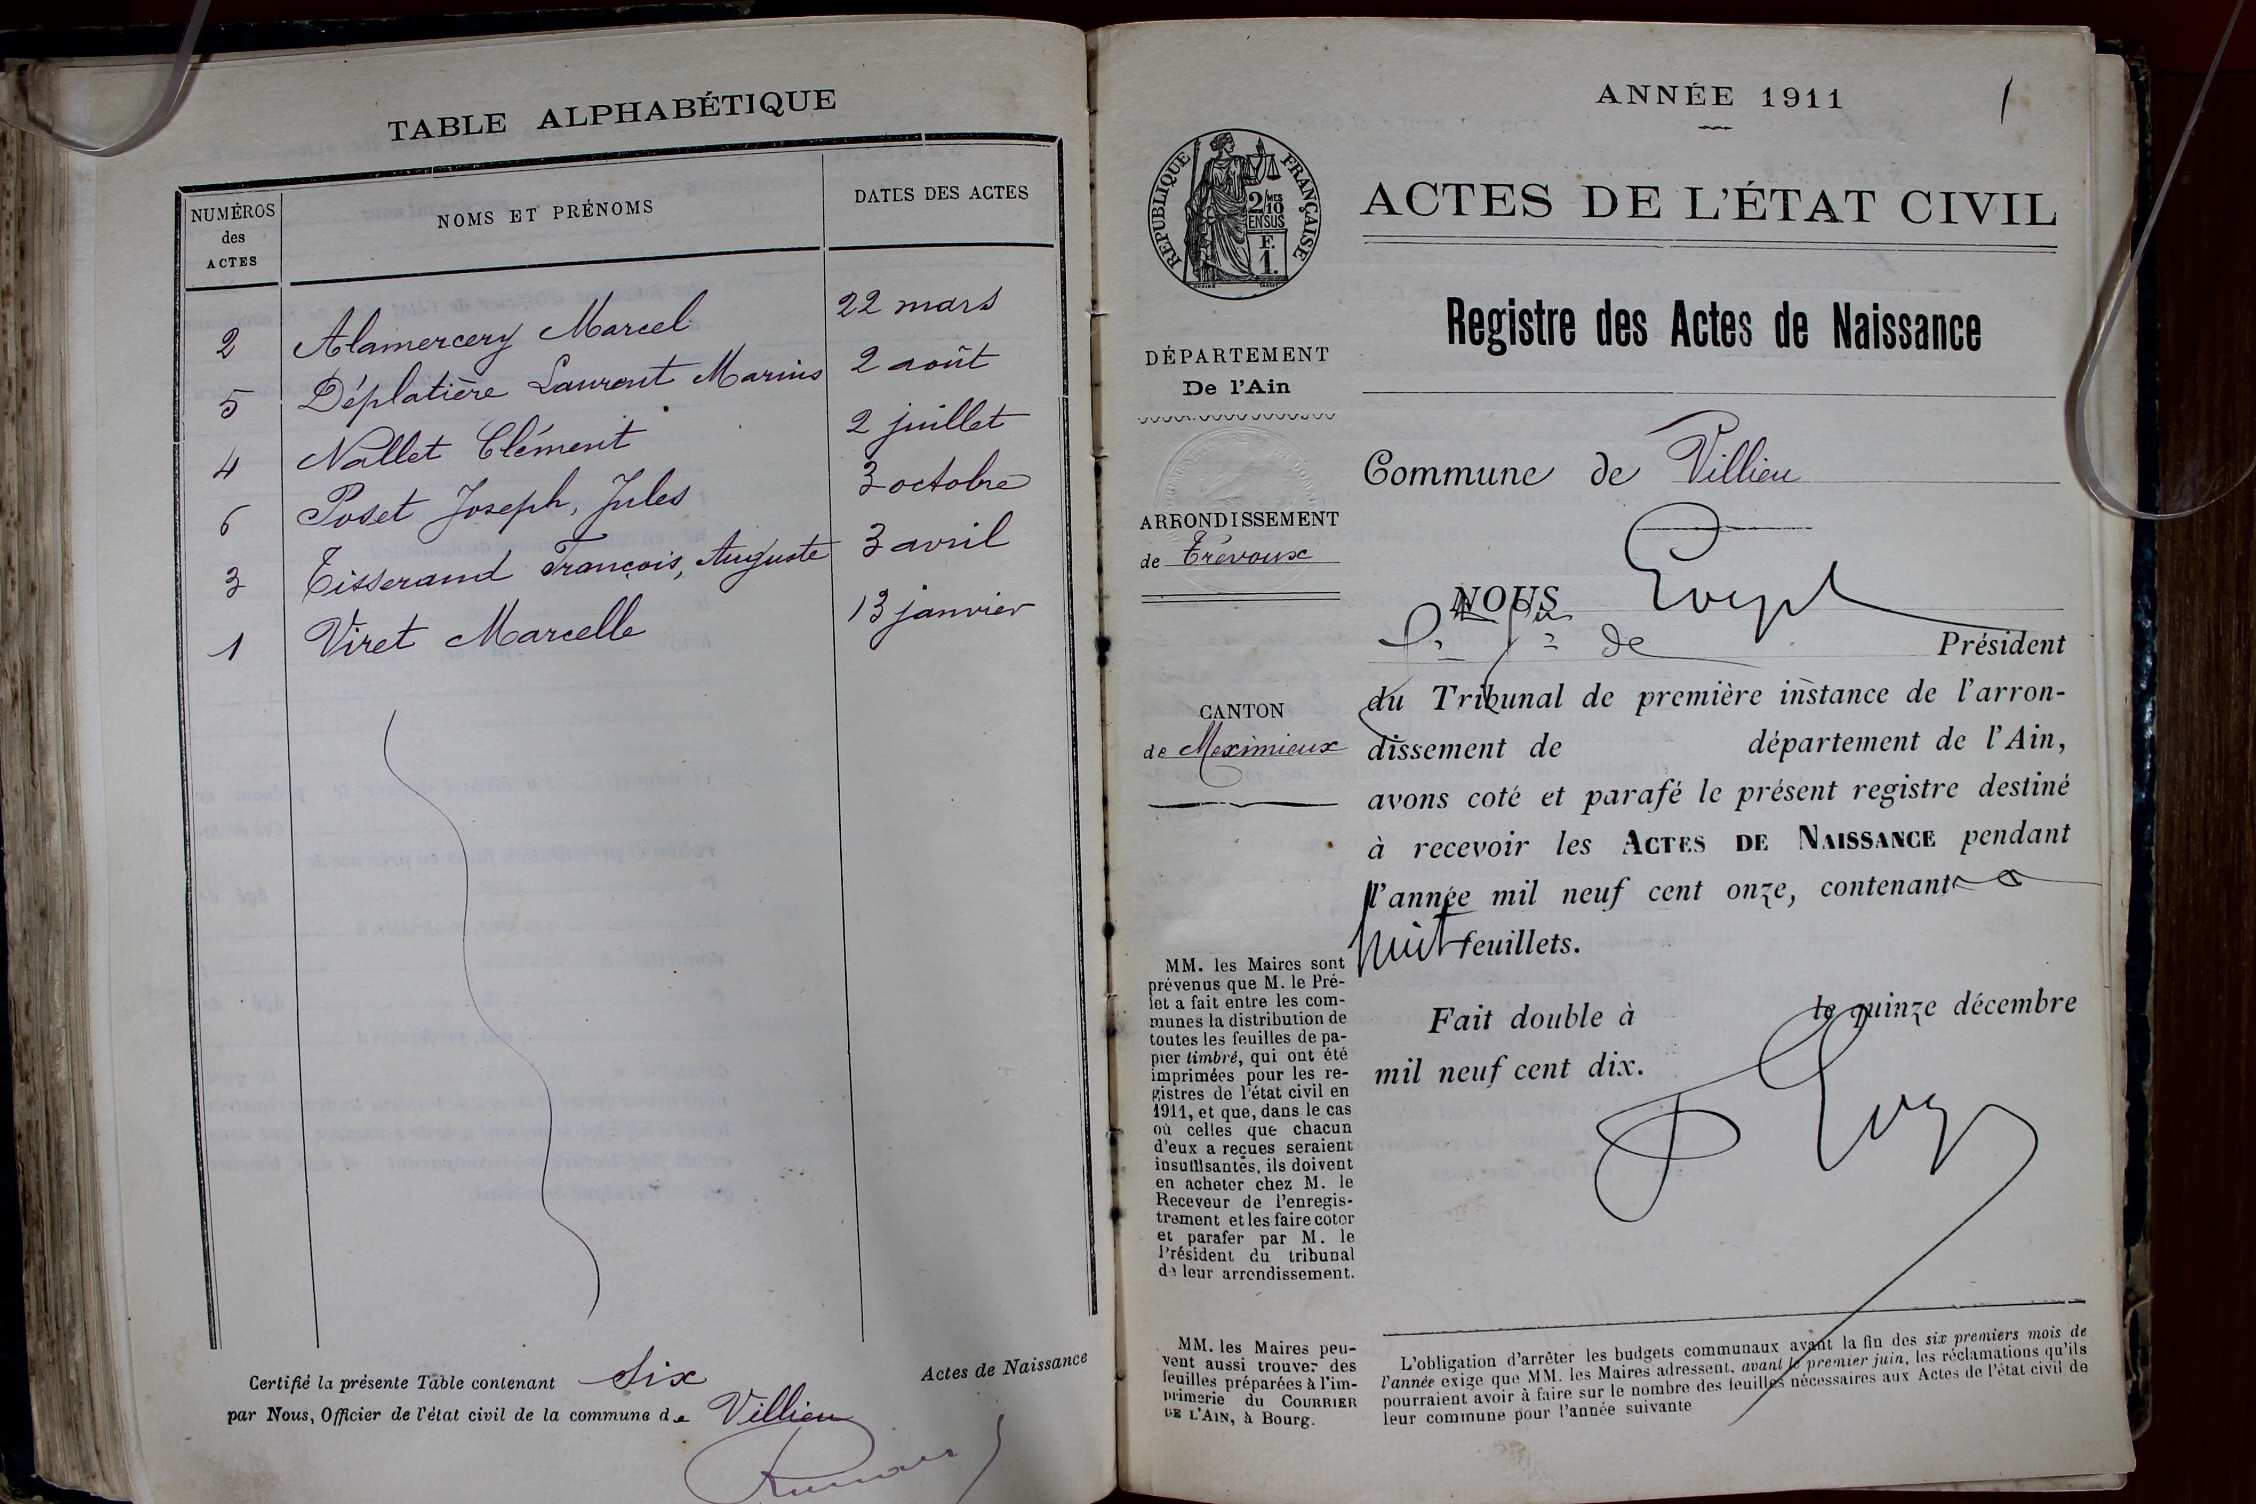 TABLE ALPHABÉTIQUE
NUMÉROS des ACTES
NOMS ET PRÉNOMS
DATES DES ACTES
2 Alamercery Marcel 22 mars
5 Déplatière Laurent Marius 2 août
4 Nallet Clément 2 juillet
6 Poset Joseph, Jules 3 octobre
3 Tisserand François, Auguste 3 avril
1 Viret Marcelle 13 janvier
Certifié la présente Table contenant Six Actes de Naissance
par Nous, Officier de l'état civil de la commune de Villieu
ANNÉE 1911
1
RÉPUBLIQUE FRANÇAISE
2/10 MES
EN SUS
F.
1.
ACTES DE L'ÉTAT CIVIL
Registre des Actes de Naissance
DÉPARTEMENT
De l'Ain
ARRONDISSEMENT
de Trévoux
CANTON
de Meximieux
MM. les Maires sont
prévenus que M. le Pré-
fet a fait entre les com-
munes la distribution de
toutes les feuilles de pa-
pier timbré, qui ont été
imprimées pour les re-
gistres de l'état civil en
1911, et que, dans le cas
où celles que chacun
d'eux a reçues seraient
insuffisantes, ils doivent
en acheter chez M. le
Receveur de l'enregis-
trement et les faire coter
et parafer par M. le
Président du tribunal
de leur arrondissement.
MM. les Maires peu-
vent aussi trouver des
feuilles préparées à l'im-
primerie du COURRIER
DE L'AIN, à Bourg.
Commune de Villieu
NOUS
de Président
du Tribunal de première instance de l'arron-
dissement de département de l'Ain,
avons coté et parafé le présent registre destiné
à recevoir les ACTES DE NAISSANCE pendant
l'année mil neuf cent onze, contenant
huit feuillets.
Fait double à le quinze décembre
mil neuf cent dix.
L'obligation d'arrêter les budgets communaux avant la fin des six premiers mois de
l'année exige que MM. les Maires adressent, avant le premier juin, les réclamations qu'ils
pourraient avoir à faire sur le nombre des feuilles nécessaires aux Actes de l'état civil de
leur commune pour l'année suivante